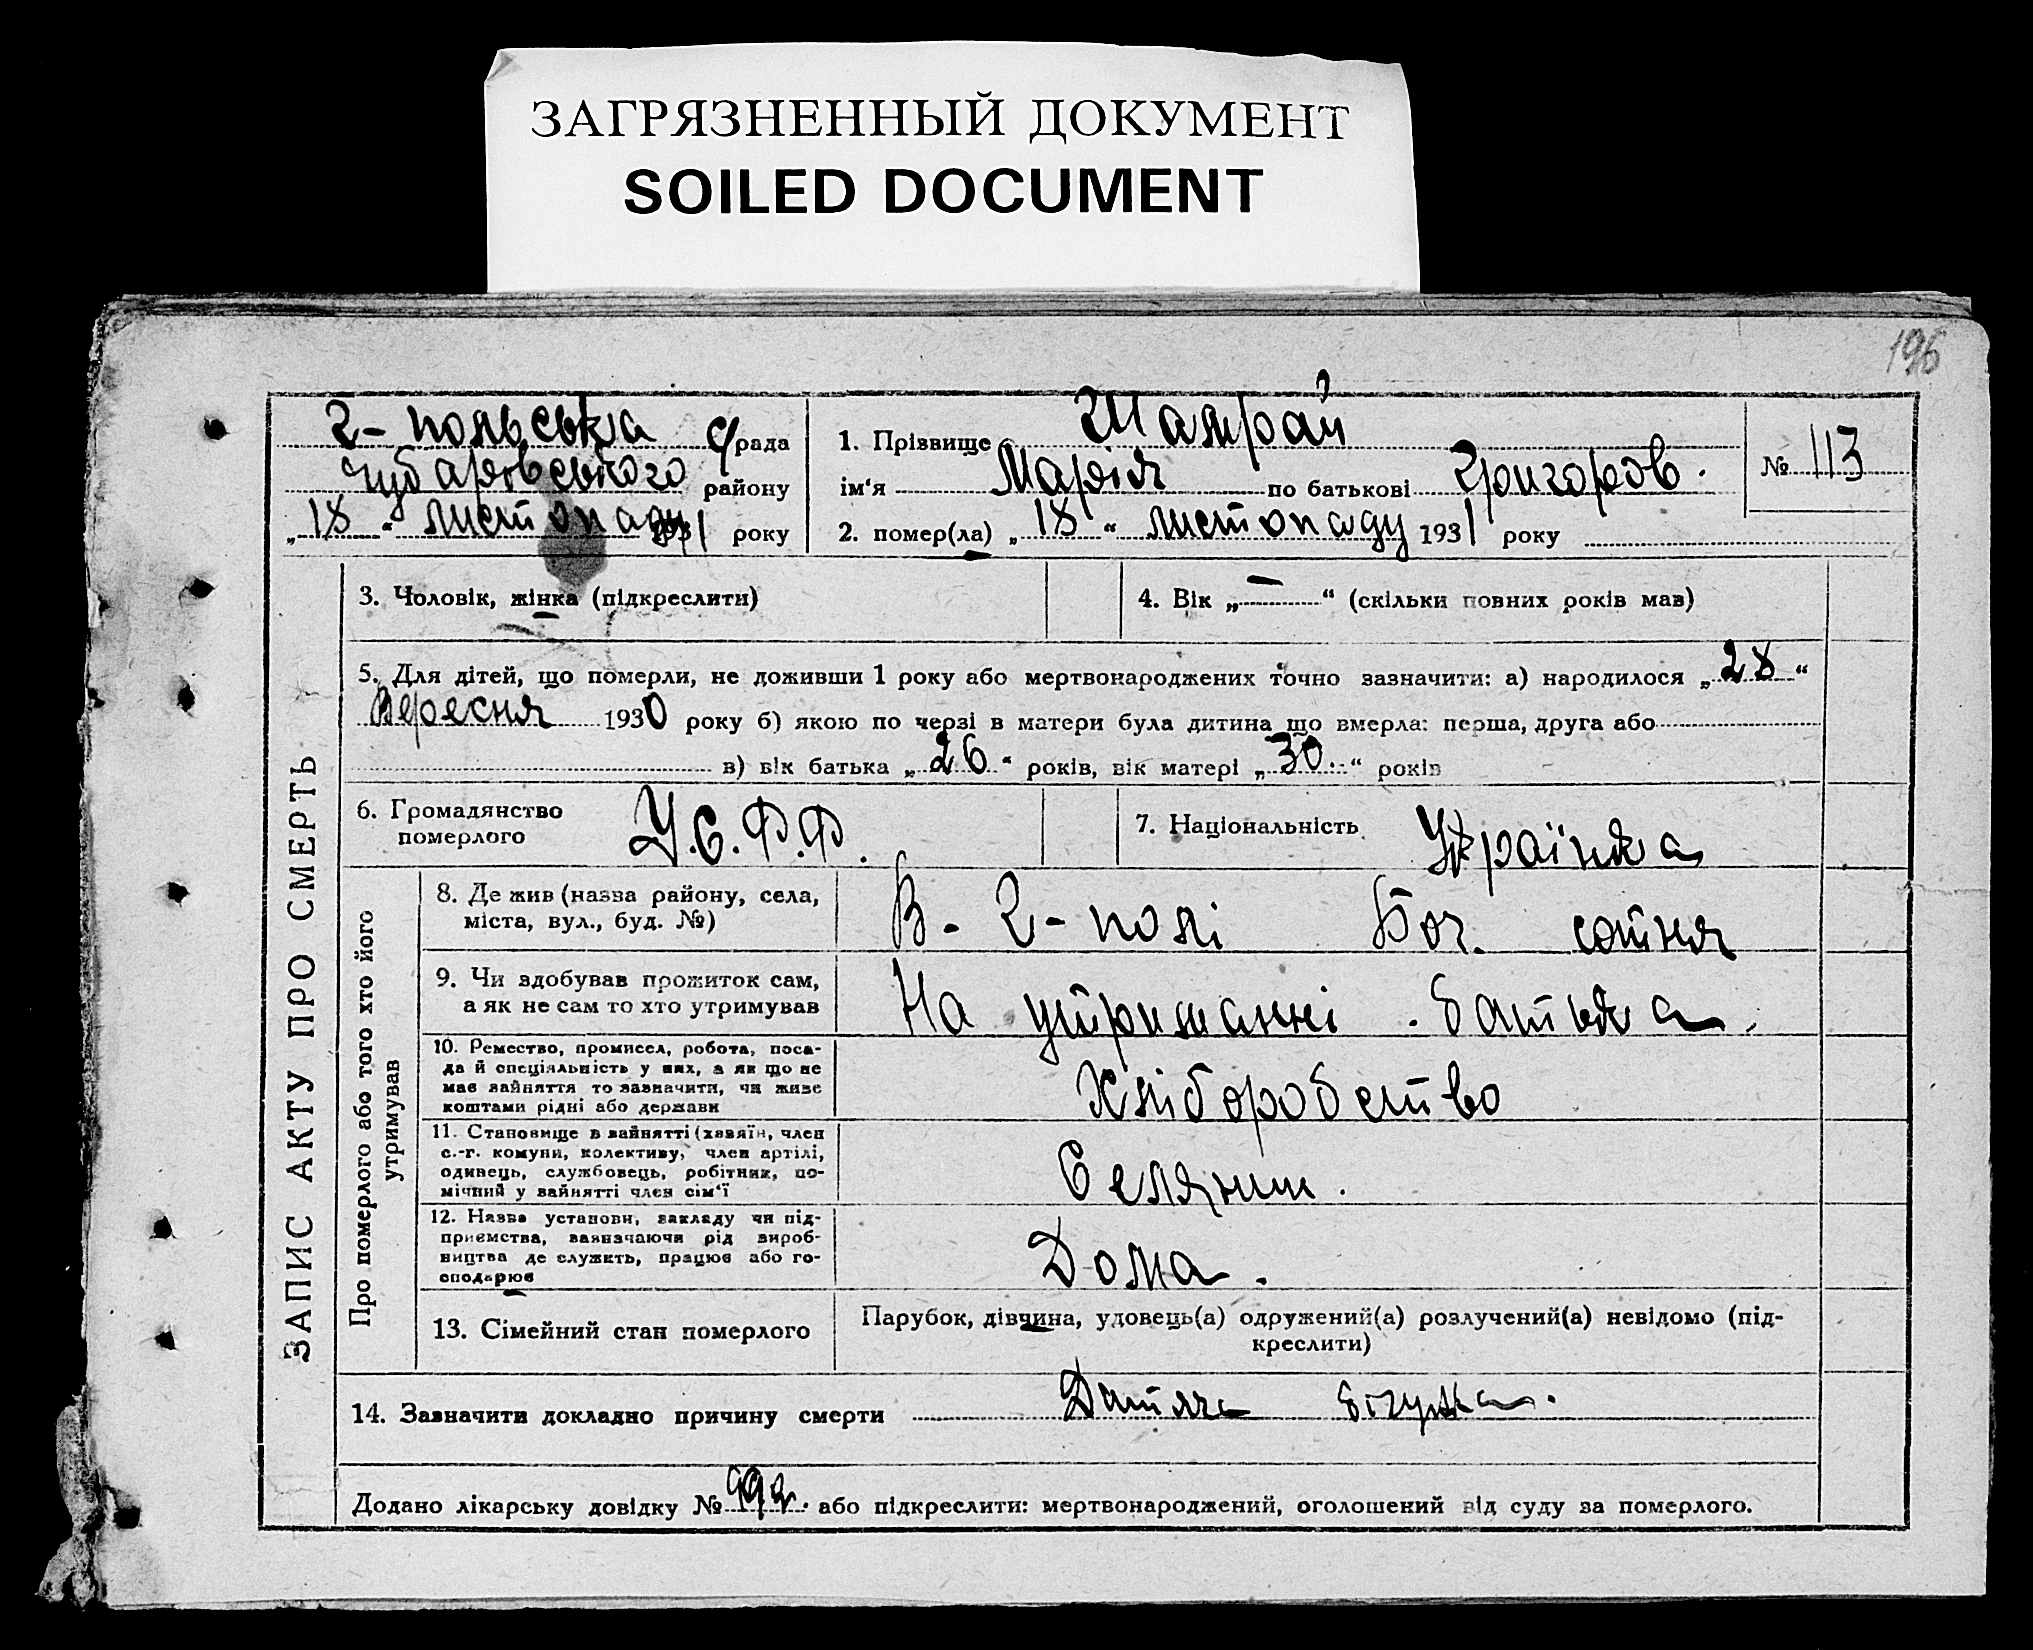 ЗАГРЯЗНЕННЫЙ ДОКУМЕНТ
SOILED DOCUMENT
196
2-польська с/рада
Чубарівського району
„18“ листопаду 1931 року
1. Прізвище Шамрай
ім'я Марія по батькові Григоров.
2. помер(ла) „18“ листопаду 1931 року
№ 113
ЗАПИС АКТУ ПРО СМЕРТЬ
3. Чоловік, жінка (підкреслити)
4. Вік „—“ (скільки повних років мав)
5. Для дітей, що померли, не доживши 1 року або мертвонароджених точно зазначити: а) народилося „28“
Вересня 1930 року б) якою по черзі в матери була дитина що вмерла: перша, друга або
в) вік батька „26“ років, вік матері „30“ років
6. Громадянство
померлого
У.С.Р.Р.
7. Національність Українка
Про померлого або того хто його
утримував
8. Де жив (назва району, села,
міста, вул., буд. №)
В- 2-полі Боч. сотня
9. Чи здобував прожиток сам,
а як не сам то хто утримував
На утриманні батька
10. Ремество, промисел, робота, поса-
да й спеціяльність у них, а як що не
має зайняття то зазначити, чи живе
коштами рідні або держави
Хліборобство
11. Становище в зайнятті (хазяїн, член
с.-г. комуни, колективу, член артілі,
одинець, службовець, робітник, по-
мічний у зайнятті член сім'ї
Селянин.
12. Назва установи, закладу чи під-
приємства, зазначаючи рід вироб-
ництва де служить, працює або го-
сподарює
Дома.
13. Сімейний стан померлого
Парубок, дівчина, удовець(а) одружений(а) розлучений(а) невідомо (під-
креслити)
14. Зазначити докладно причину смерти Дитяча
Додано лікарську довідку № 992. або підкреслити: мертвонароджений, оголошений від суду за померлого.